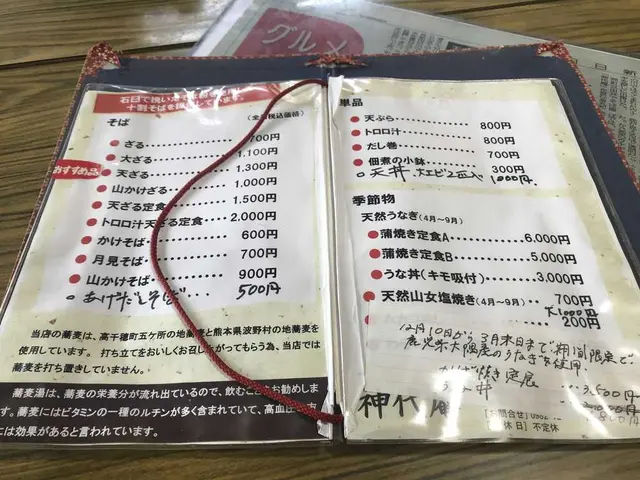 グルメ
石臼で挽いた
十割そばを
そば
(全
税込価格)
ざる 700円
大ざる 1,100円
おすすめ品
天ざる 1,300円
山かけざる 1,000円
天ざる定食 1,500円
トロロ汁天ざる定食 2,000円
かけそば 600円
月見そば 700円
山かけそば 900円
あげ そば… 500円
当店の蕎麦は、高千穂町五ケ所の地蕎麦と熊本県波野村の地蕎麦を
使用しています。 打ち立てをおいしくお召し がってもらう為、当店では
蕎麦を打ち置きしていません。
蕎麦湯は、蕎麦の栄養分が流れ出ているので、飲むことをお勧めしま
す。蕎麦にはビタミンの一種のルチンが多く含まれていて、高血圧
には効果があると言われています。
単品
天ぷら 800円
トロロ汁 800円
だし巻 700円
佃煮の小鉢 300円
天丼 大エビ2匹入 1000円
季節物
天然うなぎ(4月〜9月)
蒲焼き定食A 6,000円
蒲焼き定食B 5,000円
うな丼(キモ吸付) 3,000円
天然山女塩焼き(4月〜9月) 700円
大1000円
200円
12月10日から3月末日まで期間限定で
鹿児島大隅産のうなぎを使用
定食 3,500円
神代
[お問合せ]
休日] 不定休